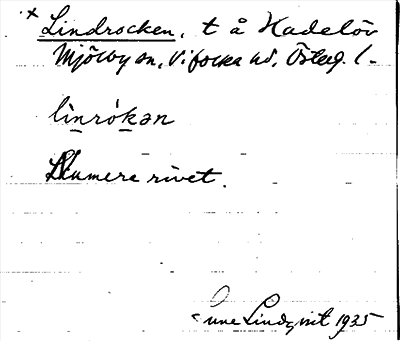 × Lindrocken, t å Hadelöv
Mjölby sn, Vifolka hd, Östug. l-
lìnrókən
Numera rivet.
Sune Lindqvist 1935